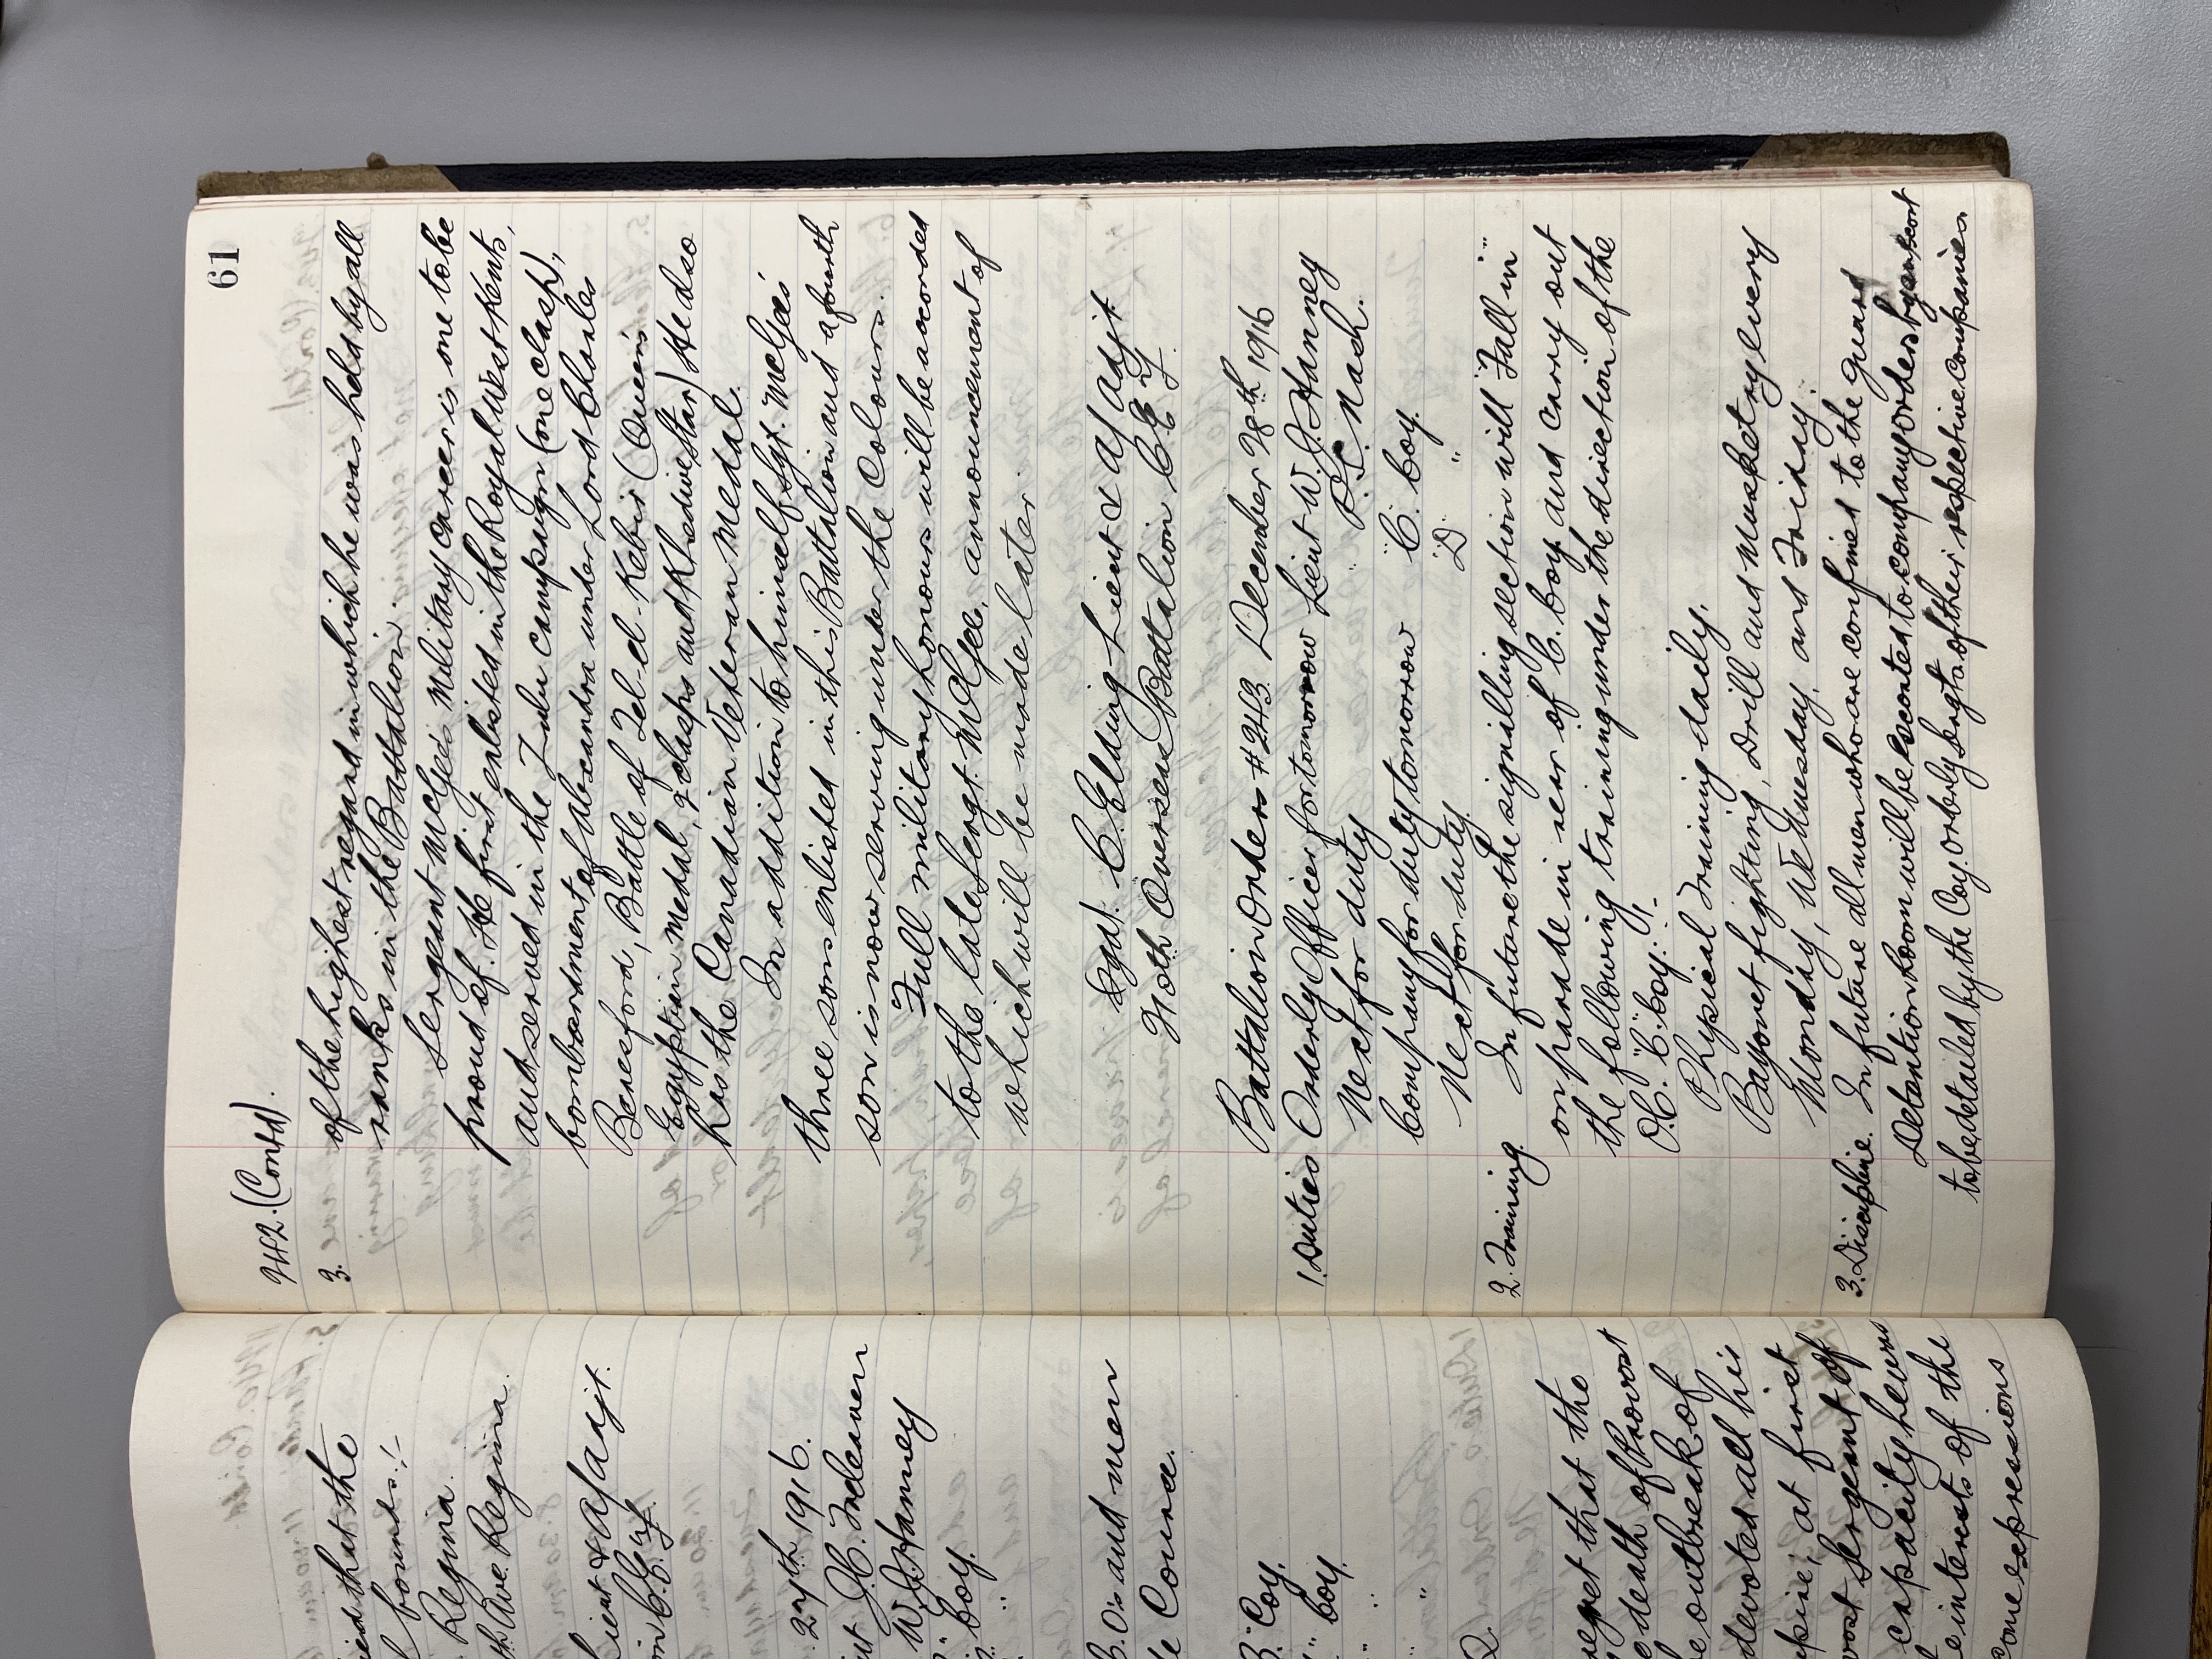 ied that the
bounds:-
Regina.
Ave. Regina.
Lieut & A/Adjt.
ion C.E.F.
27th 1916.
J.C. Treleaven
W.J. Hanney
Coy.
"
C.O's and men
Course.
B. Coy.
" Coy.
" "
"
regret that the
death of Provost
outbreak of
devoted all his
at first
vost Sergeant of
capacity he was
e interests of the
ome expressions
61
242. (Contd).
3.
of the highest regard in which he was held by all
ranks in the Battalion.
Sergeant McGee's military career is one to be
proud of. He first enlisted in the Royal West Kents,
and served in the Zulu campaign (one clasp),
bombardment of Alexandra under Lord Charles
Beresford, Battle of Tel-el-Kebir (Queen's
Egyptian Medal, 2 clasps and Khedive Star) He also
has the Canadian Veteran Medal.
In addition to himself Sgt. McGee's
three sons enlisted in this Battalion and a fourth
son is now serving under the Colours.
Full military honours will be accorded
to the late Sergt. McGee, announcement of
which will be made later.
Sgd. C. Elding Lieut & A/Adjt
Overseas Battalion C.E.F.
Battalion Orders #243. December 28th 1916
1. Duties Orderly Officer for tomorrow Lieut W.J. Hanney
Next for duty " Nash.
Company for duty tomorrow "C. Coy.
Next for duty. "D "
2. Training. In future the signalling section will "Fall in"
on parade in rear of C. Coy and carry out
the following training under the direction of the
O.C. "C. Coy:-
Physical Training daily.
Bayonet fighting, Drill and Musketry every
Monday, Wednesday, and Friday.
3. Discipline. In future all men who are confined to the guard
Detention Room will be escorted to company orders by an escort
to be detailed by the Coy. Orderly Sergts. of their respective companies